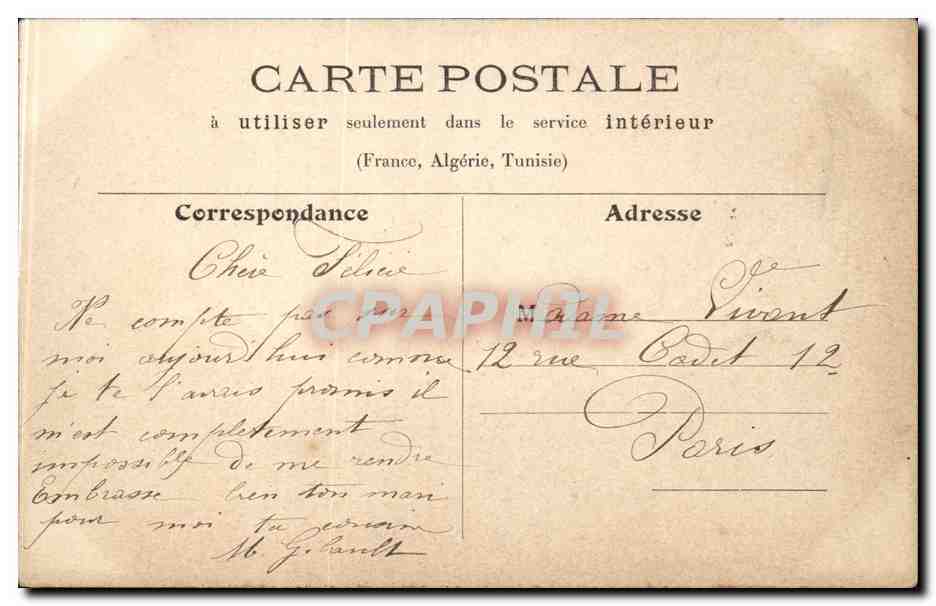 CARTE POSTALE
à utiliser seulement dans le service intérieur
(France, Algérie, Tunisie)
Correspondance
Chère Félicie
Ne compte pas sur
moi aujourd'hui comme
je te l'avais promis il
m'est completement
impossible de me rendre
Embrasse bien ton mari
pour moi ta cousine
M Gibault
Adresse
Madame Vivant
12 rue Cadet 12
Paris
CPAPHIL